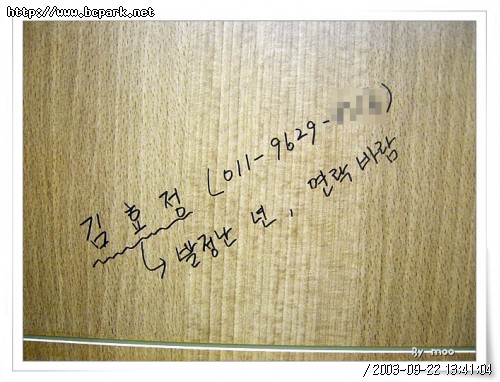 http://www.bcpark.net
김효점 (011-9629-
→ 발정난 년, 연락바람
By moo
/2003-09-22 13:41:04